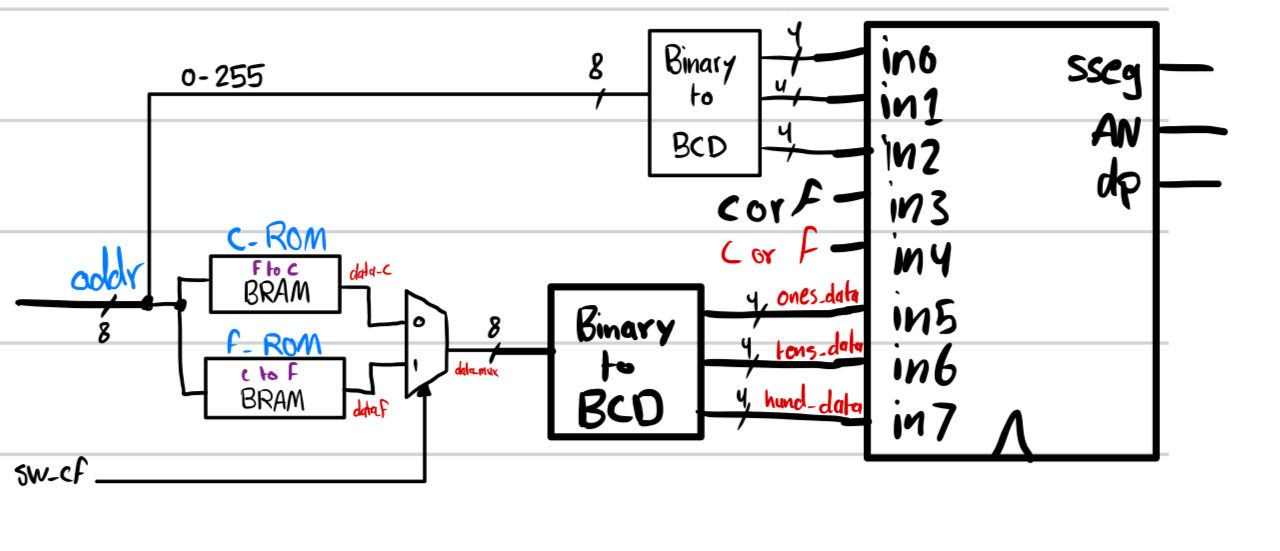 0-255
8
Binary
to
BCD
4
4
4
in0
in1
in2
in3
in4
in5
in6
in7
sseg
AN
dp
C or F
C or F
addr
8
C-ROM
F to C
BRAM
data-c
F-ROM
C to F
BRAM
data.f
0
1
8
data.mux
Binary
to
BCD
4
ones_data
4
tens_data
4
hund_data
sw_cf